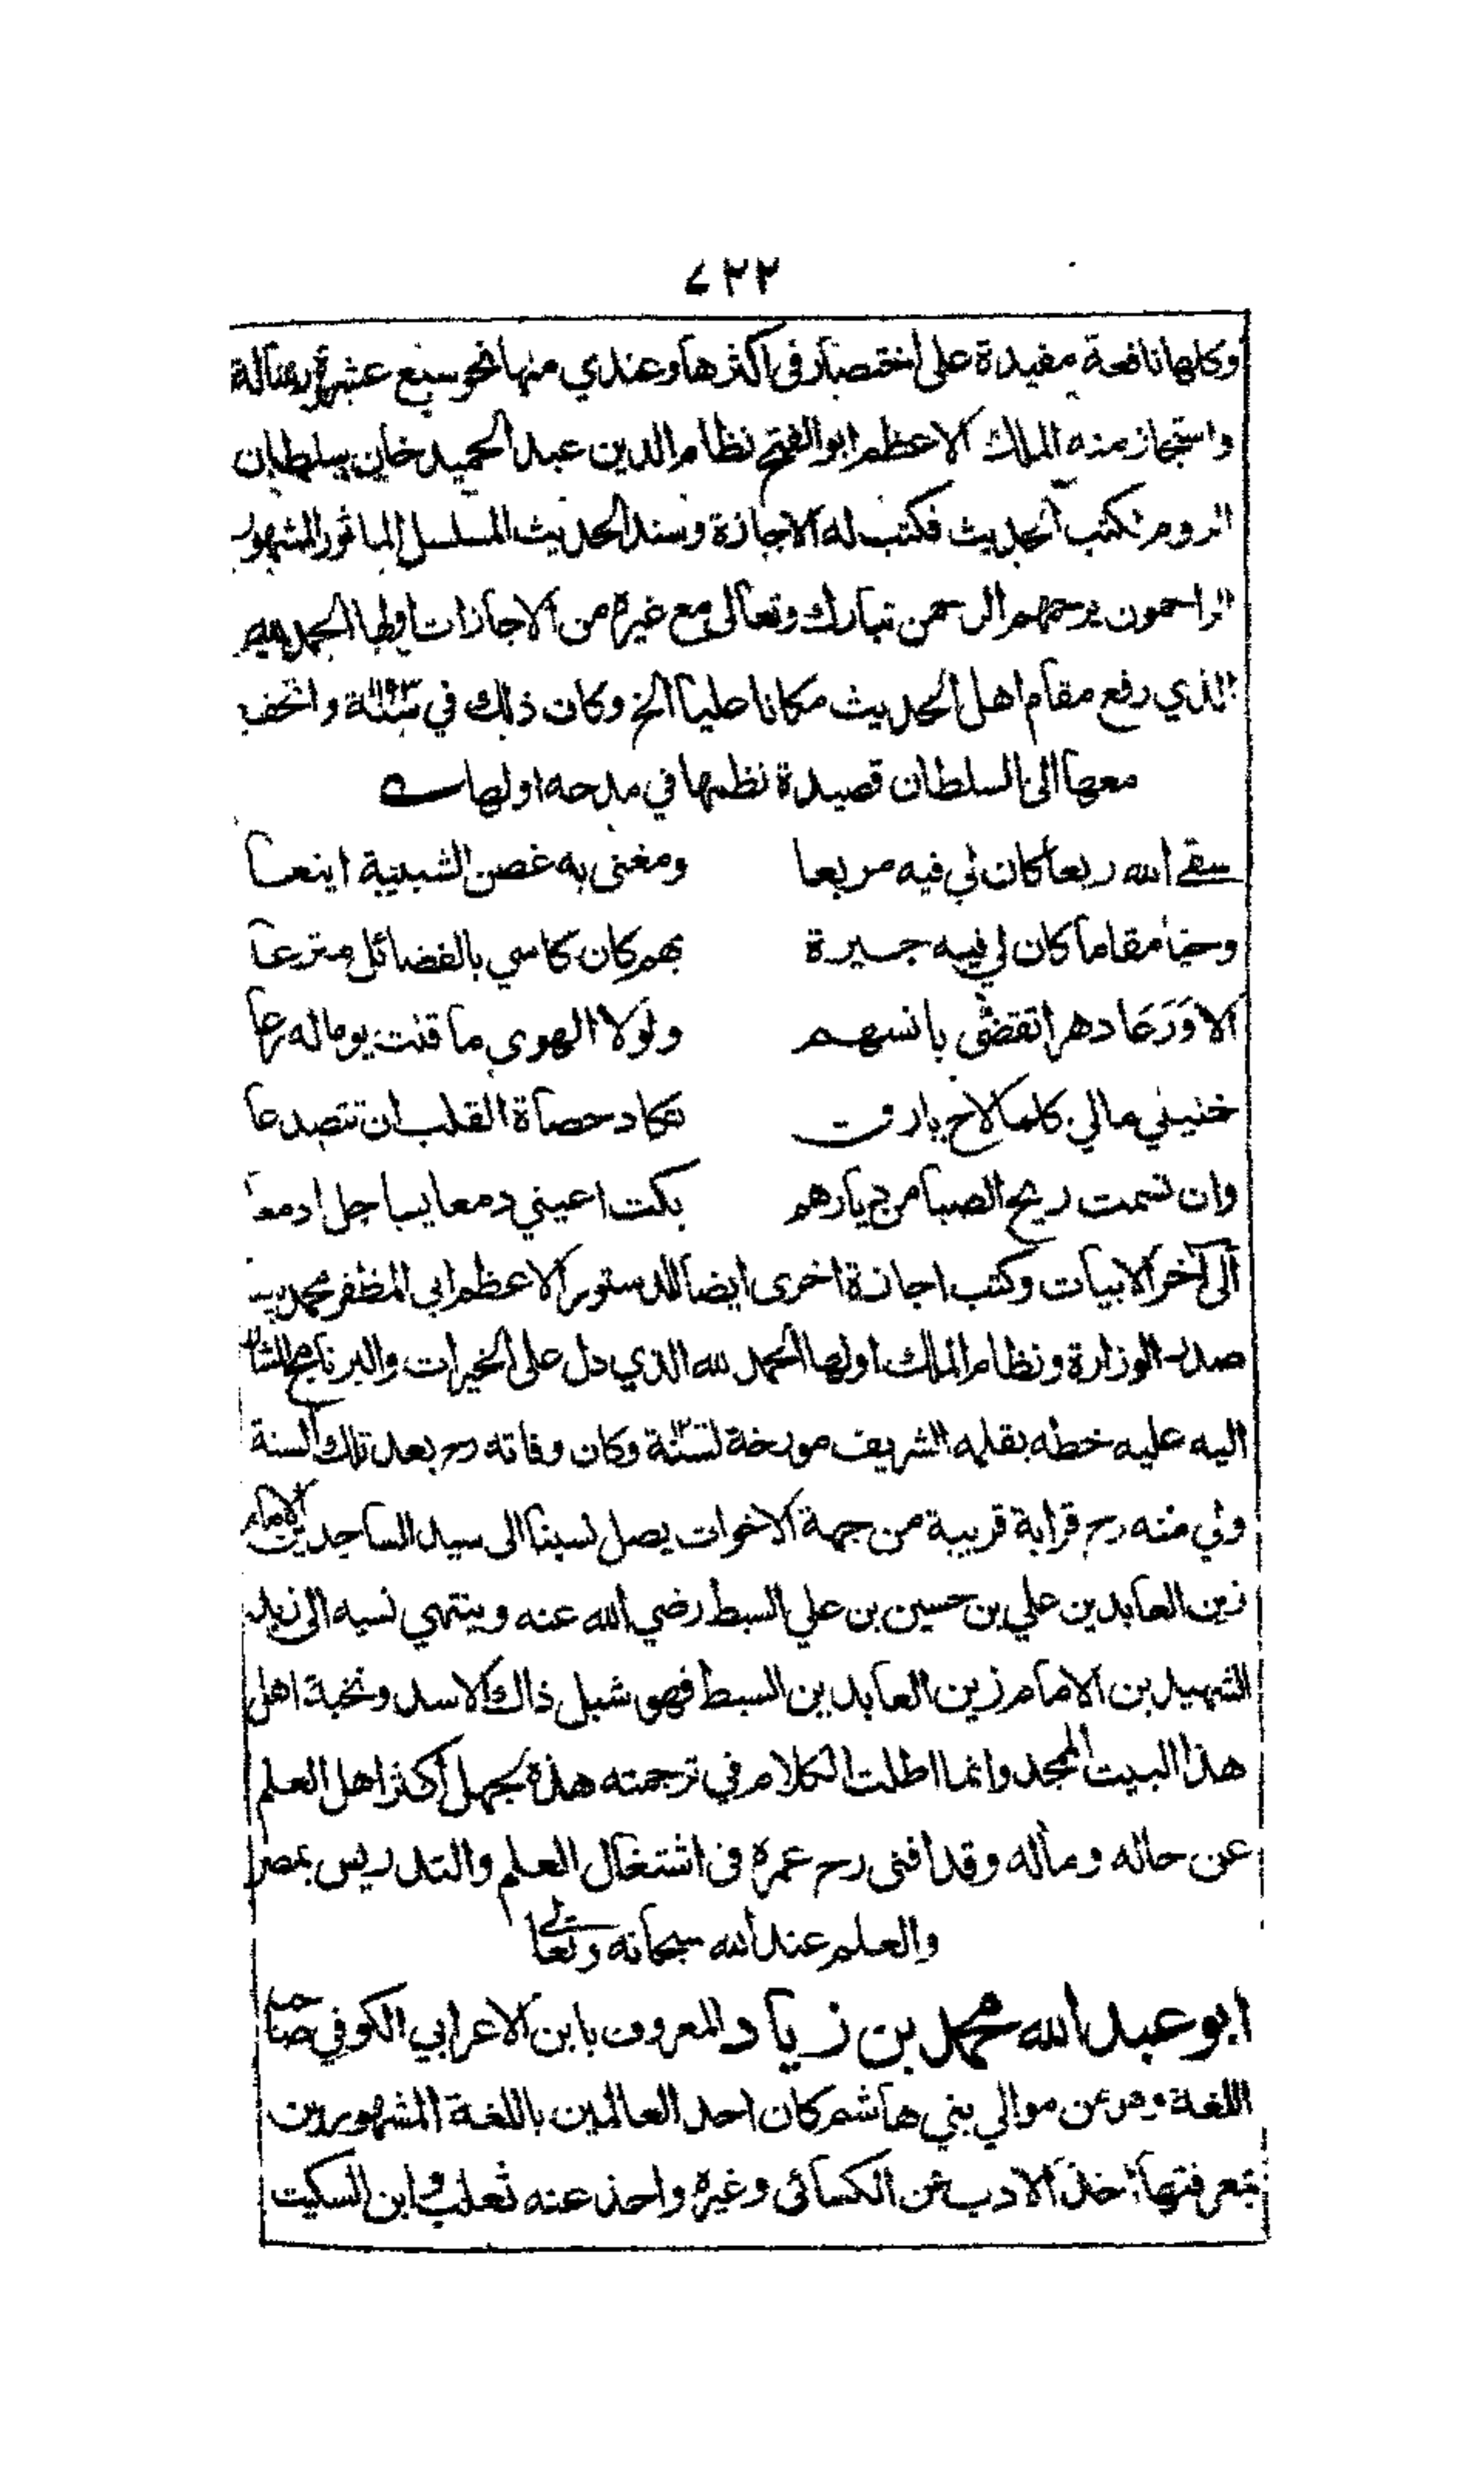 ٧٢٢
وكلها نافعة مفيدة على اختصار في اكثرها وعندي منها نحو سبع عشرة رسالة
واستجاز منه الملك الاعظم ابو الفتح نظام الدين عبد الحميد خان سلطان
الروم لكتب الحديث فكتب له الاجازة وسند الحديث المسلسل المأثور المشهور
الراحمون يرحمهم الرحمن تبارك وتعالى مع غيره من الاجازات اولها الحمد لله
الذي رفع مقام اهل الحديث مكانا عليا الخ وكان ذلك في سنة واتحف
معها الى السلطان قصيدة نظمها في مدحه اولها
سقى الله ربعا كان لي فيه مربعا ومغنى به غصن الشبيبة اينعا
وحيا مقاما كان لي فيه جيرة بهم كان كاسي بالفضائل مترعا
الا ورعا دهرا تقضى بانسهم ولولا الهوى ما قلت يوما له رعا
خليلي مالي كلما لاح بارق تكاد حصاة القلب ان تتصدعا
وان نسمت ريح الصبا من ديارهم بكت اعيني دمعا يساجل ادمعا
الى آخر الابيات وكتب اجازة اخرى ايضا للدستور الاعظم ابي المظفر محمد
صدر الوزارة ونظام الملك اولها الحمد لله الذي دل على الخيرات والبرنامج المشار
اليه عليه خطه بقلمه الشريف مورخة لسنة وكان وفاته رح بعد تلك السنة
ولي منه رح قرابة قريبة من جهة الاخوات يصل نسبنا الى سيد الساجدين الامام
زين العابدين علي بن حسين بن علي السبط رضي الله عنه وينتهي نسبه الى زيد
الشهيد بن الامام زين العابدين السبط فهو شبل ذاك الاسد ونخبة اهل
هذا البيت الممجد وانما اطلت الكلام في ترجمته هذه لجهل اكثر اهل العلم
عن حاله ومآله وقد افنى رح عمره في اشتغال العلم والتدريس بمصر
والعلم عند الله سبحانه وتعالى
ابو عبد الله محمد بن زياد المعروف بابن الاعرابي الكوفي صاحب
اللغة وهو من موالي بني هاشم كان احد العالمين باللغة المشهورين
بمعرفتها اخذ الادب عن الكسائي وغيره واخذ عنه ثعلب وابن السكيت